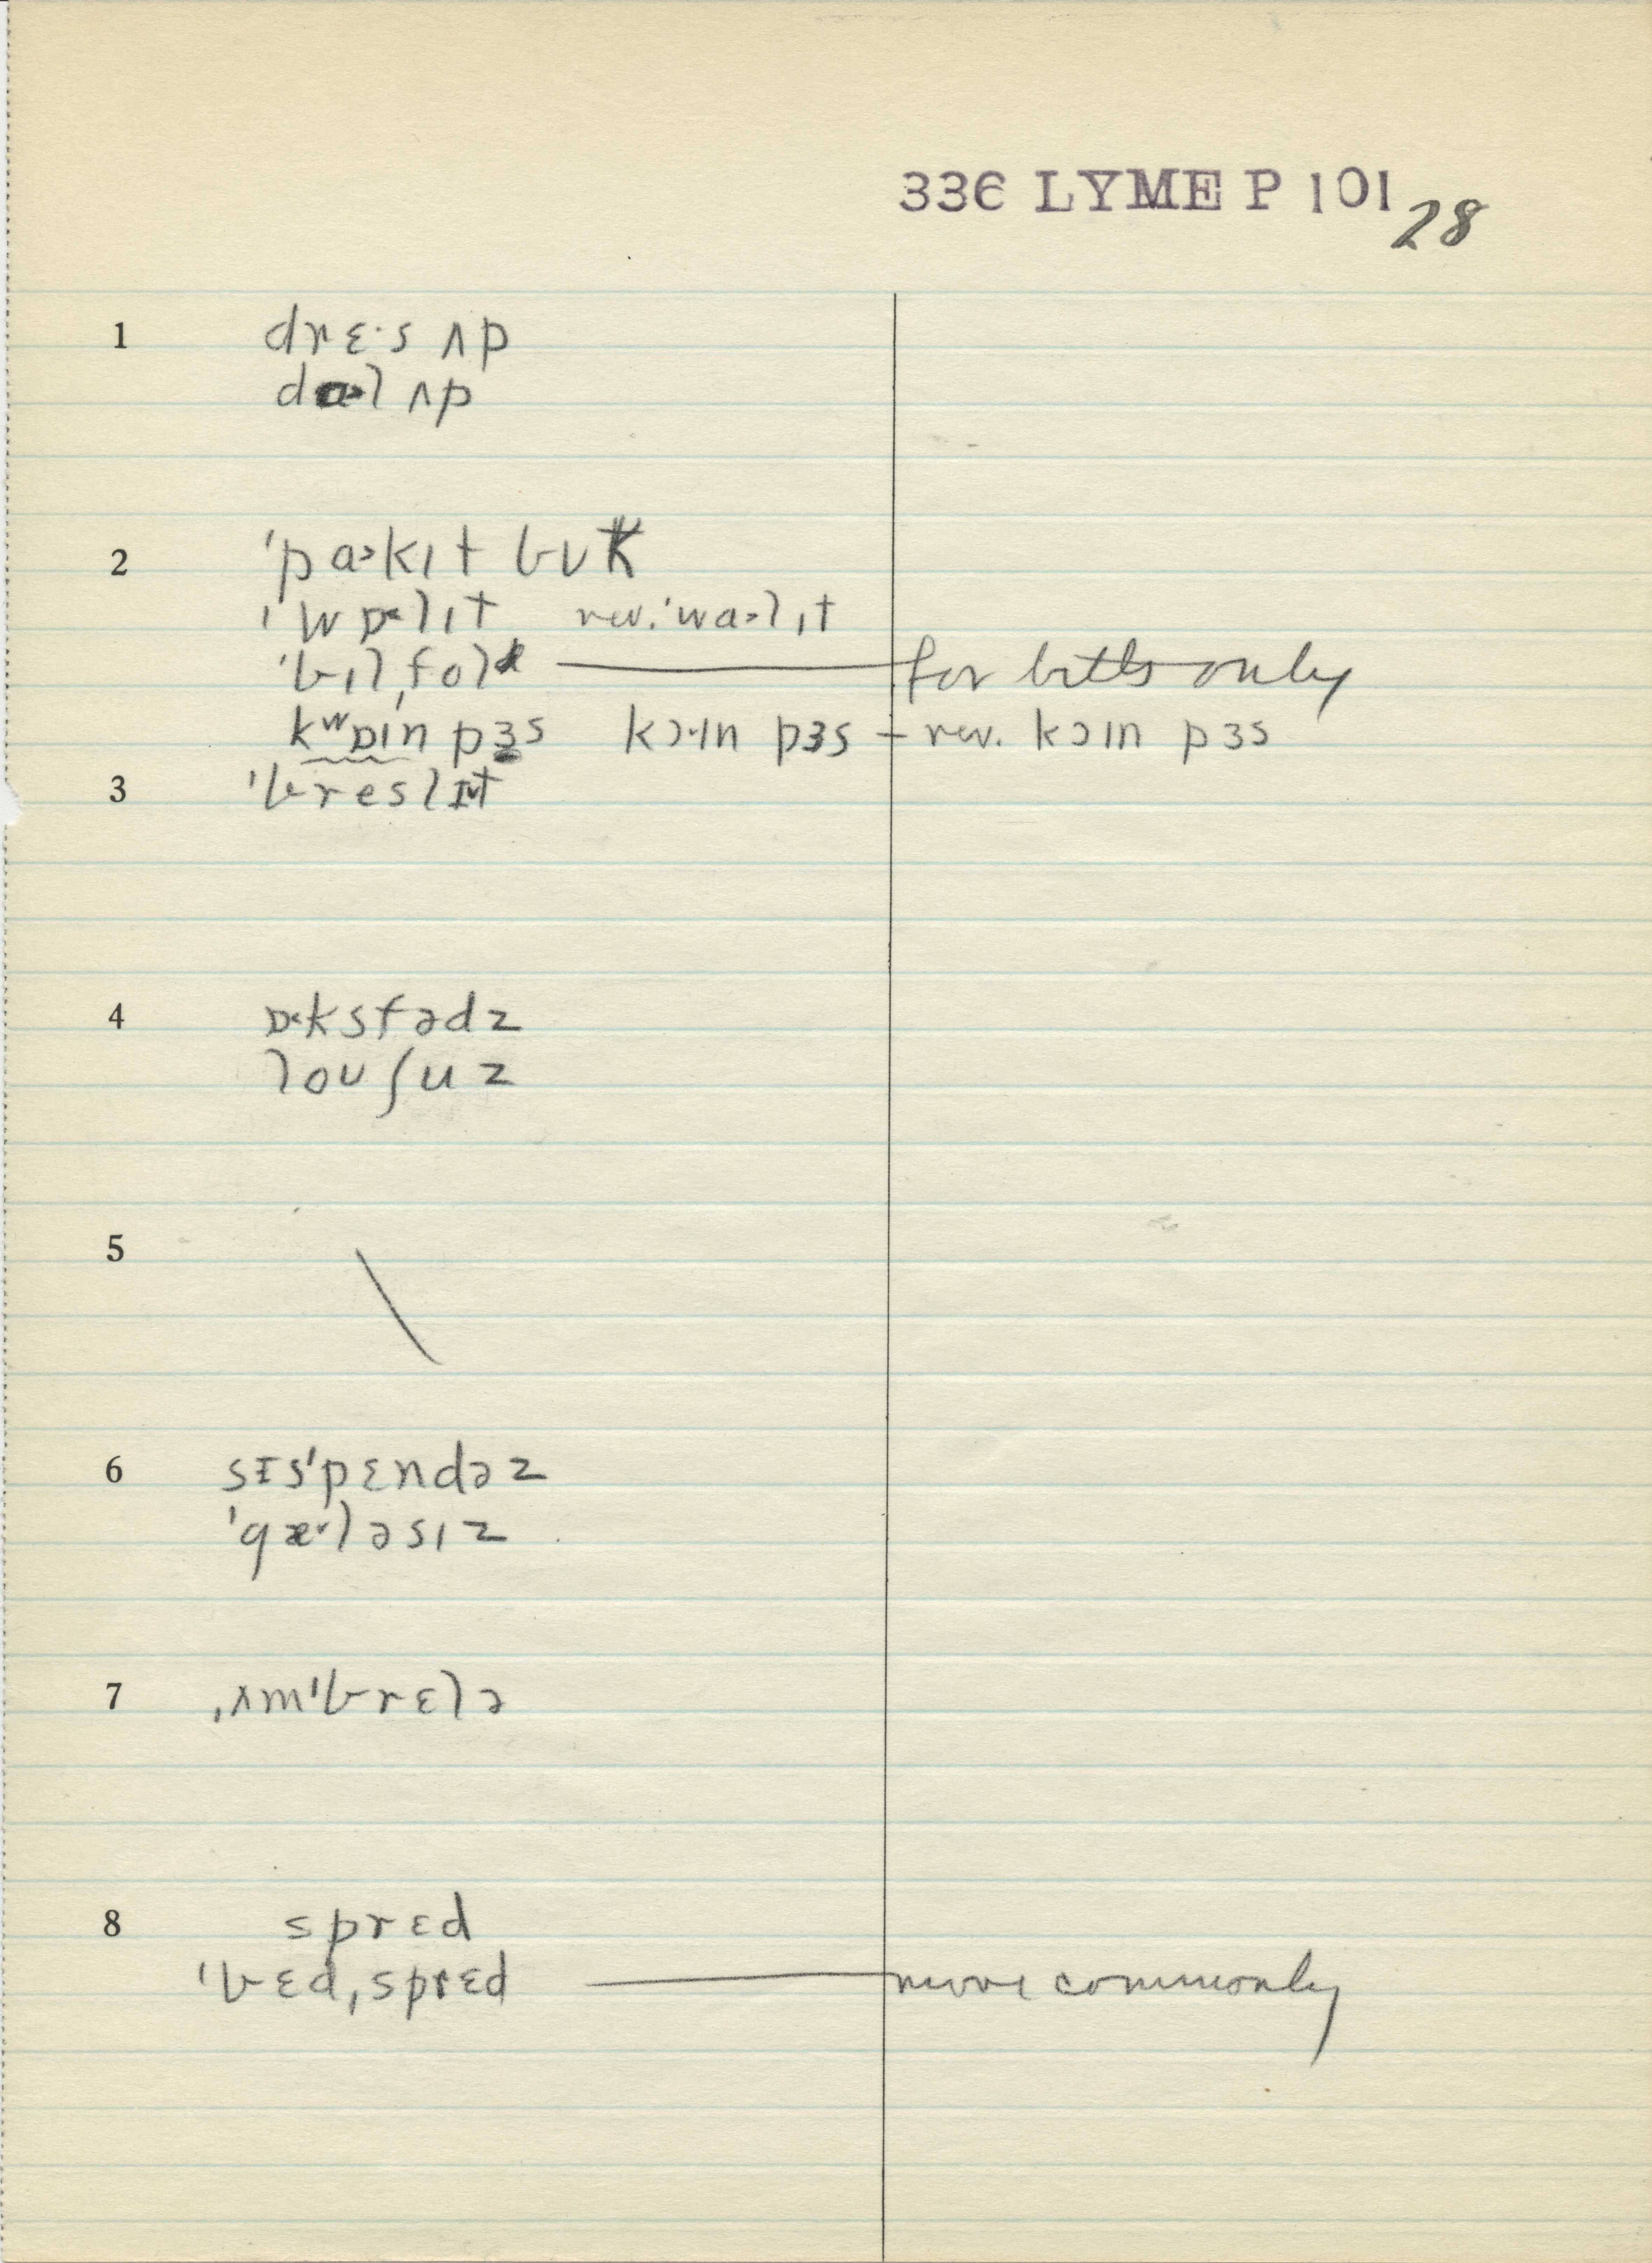 336 LYME P 101 28
1 drɛ·s ʌp
dɑ˃l ʌp
2 ˈpɑ˃kɪt bʊk
ˈwɒ˂lɪt rev. ˈwɑ˃lɪt
ˈbɪlˌfold — for bills only
kʷɒɪn pɜs kɔ·ɪn pɜs – rev. kɔɪn pɜs
3 ˈbreslɪt
4 ɒ˂ksfədz
loʊ ʃuz
5 \
6 sɪsˈpɛndəz
ˈgæ˅ləsɪz
7 ˌʌmˈbrɛlə
8 sprɛd
ˈbɛdˌsprɛd — more commonly